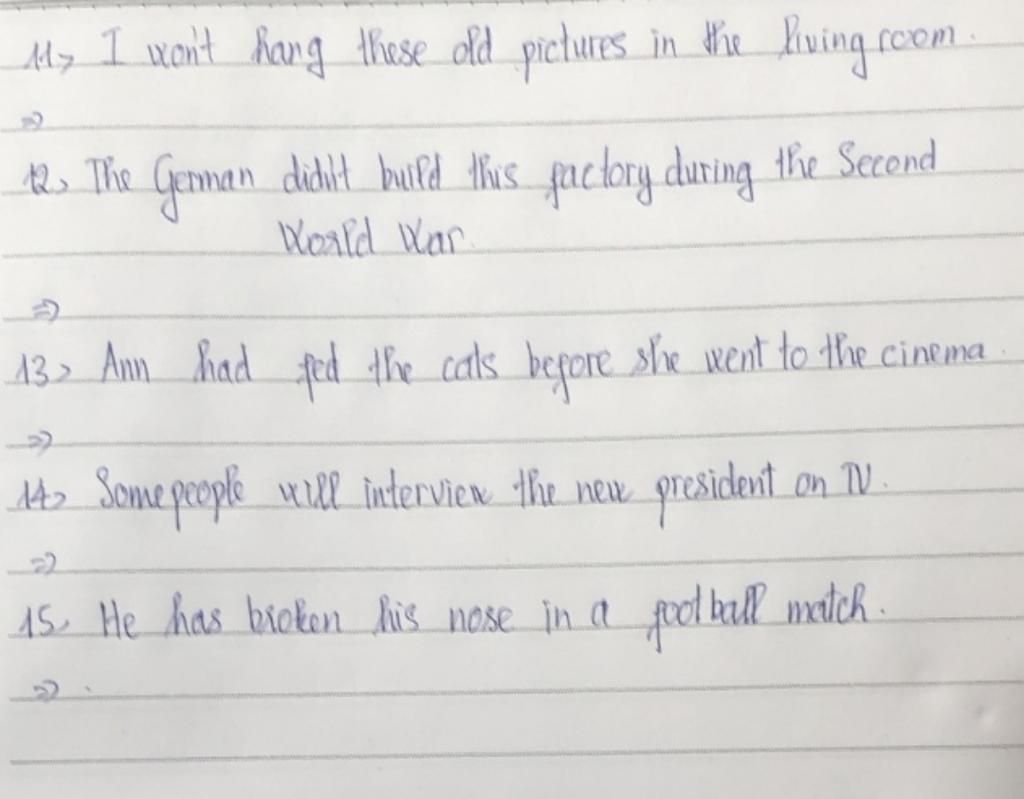 11, I won't hang these old pictures in the living room.
=>
12, The German didn't build this factory during the Second
World War.
=>
13, Ann had fed the cats before she went to the cinema.
=>
14, Some people will interview the new president on TV.
=>
15, He has broken his nose in a football match.
=>